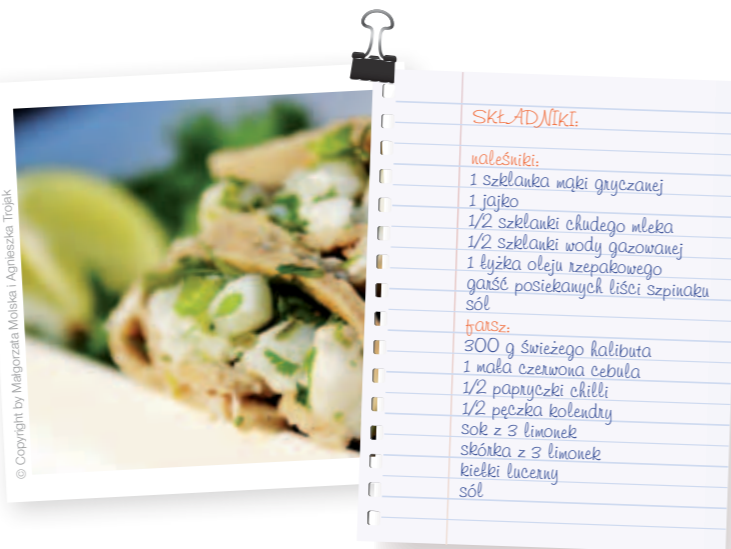 © Copyright by Małgorzata Molska i Agnieszka Trojak
SKŁADNIKI:
naleśniki:
1 szklanka mąki gryczanej
1 jajko
1/2 szklanki chudego mleka
1/2 szklanki wody gazowanej
1 łyżka oleju rzepakowego
garść posiekanych liści szpinaku
sól
farsz:
300 g świeżego halibuta
1 mała czerwona cebula
1/2 papryczki chilli
1/2 pęczka kolendry
sok z 3 limonek
skórka z 3 limonek
kiełki lucerny
sól